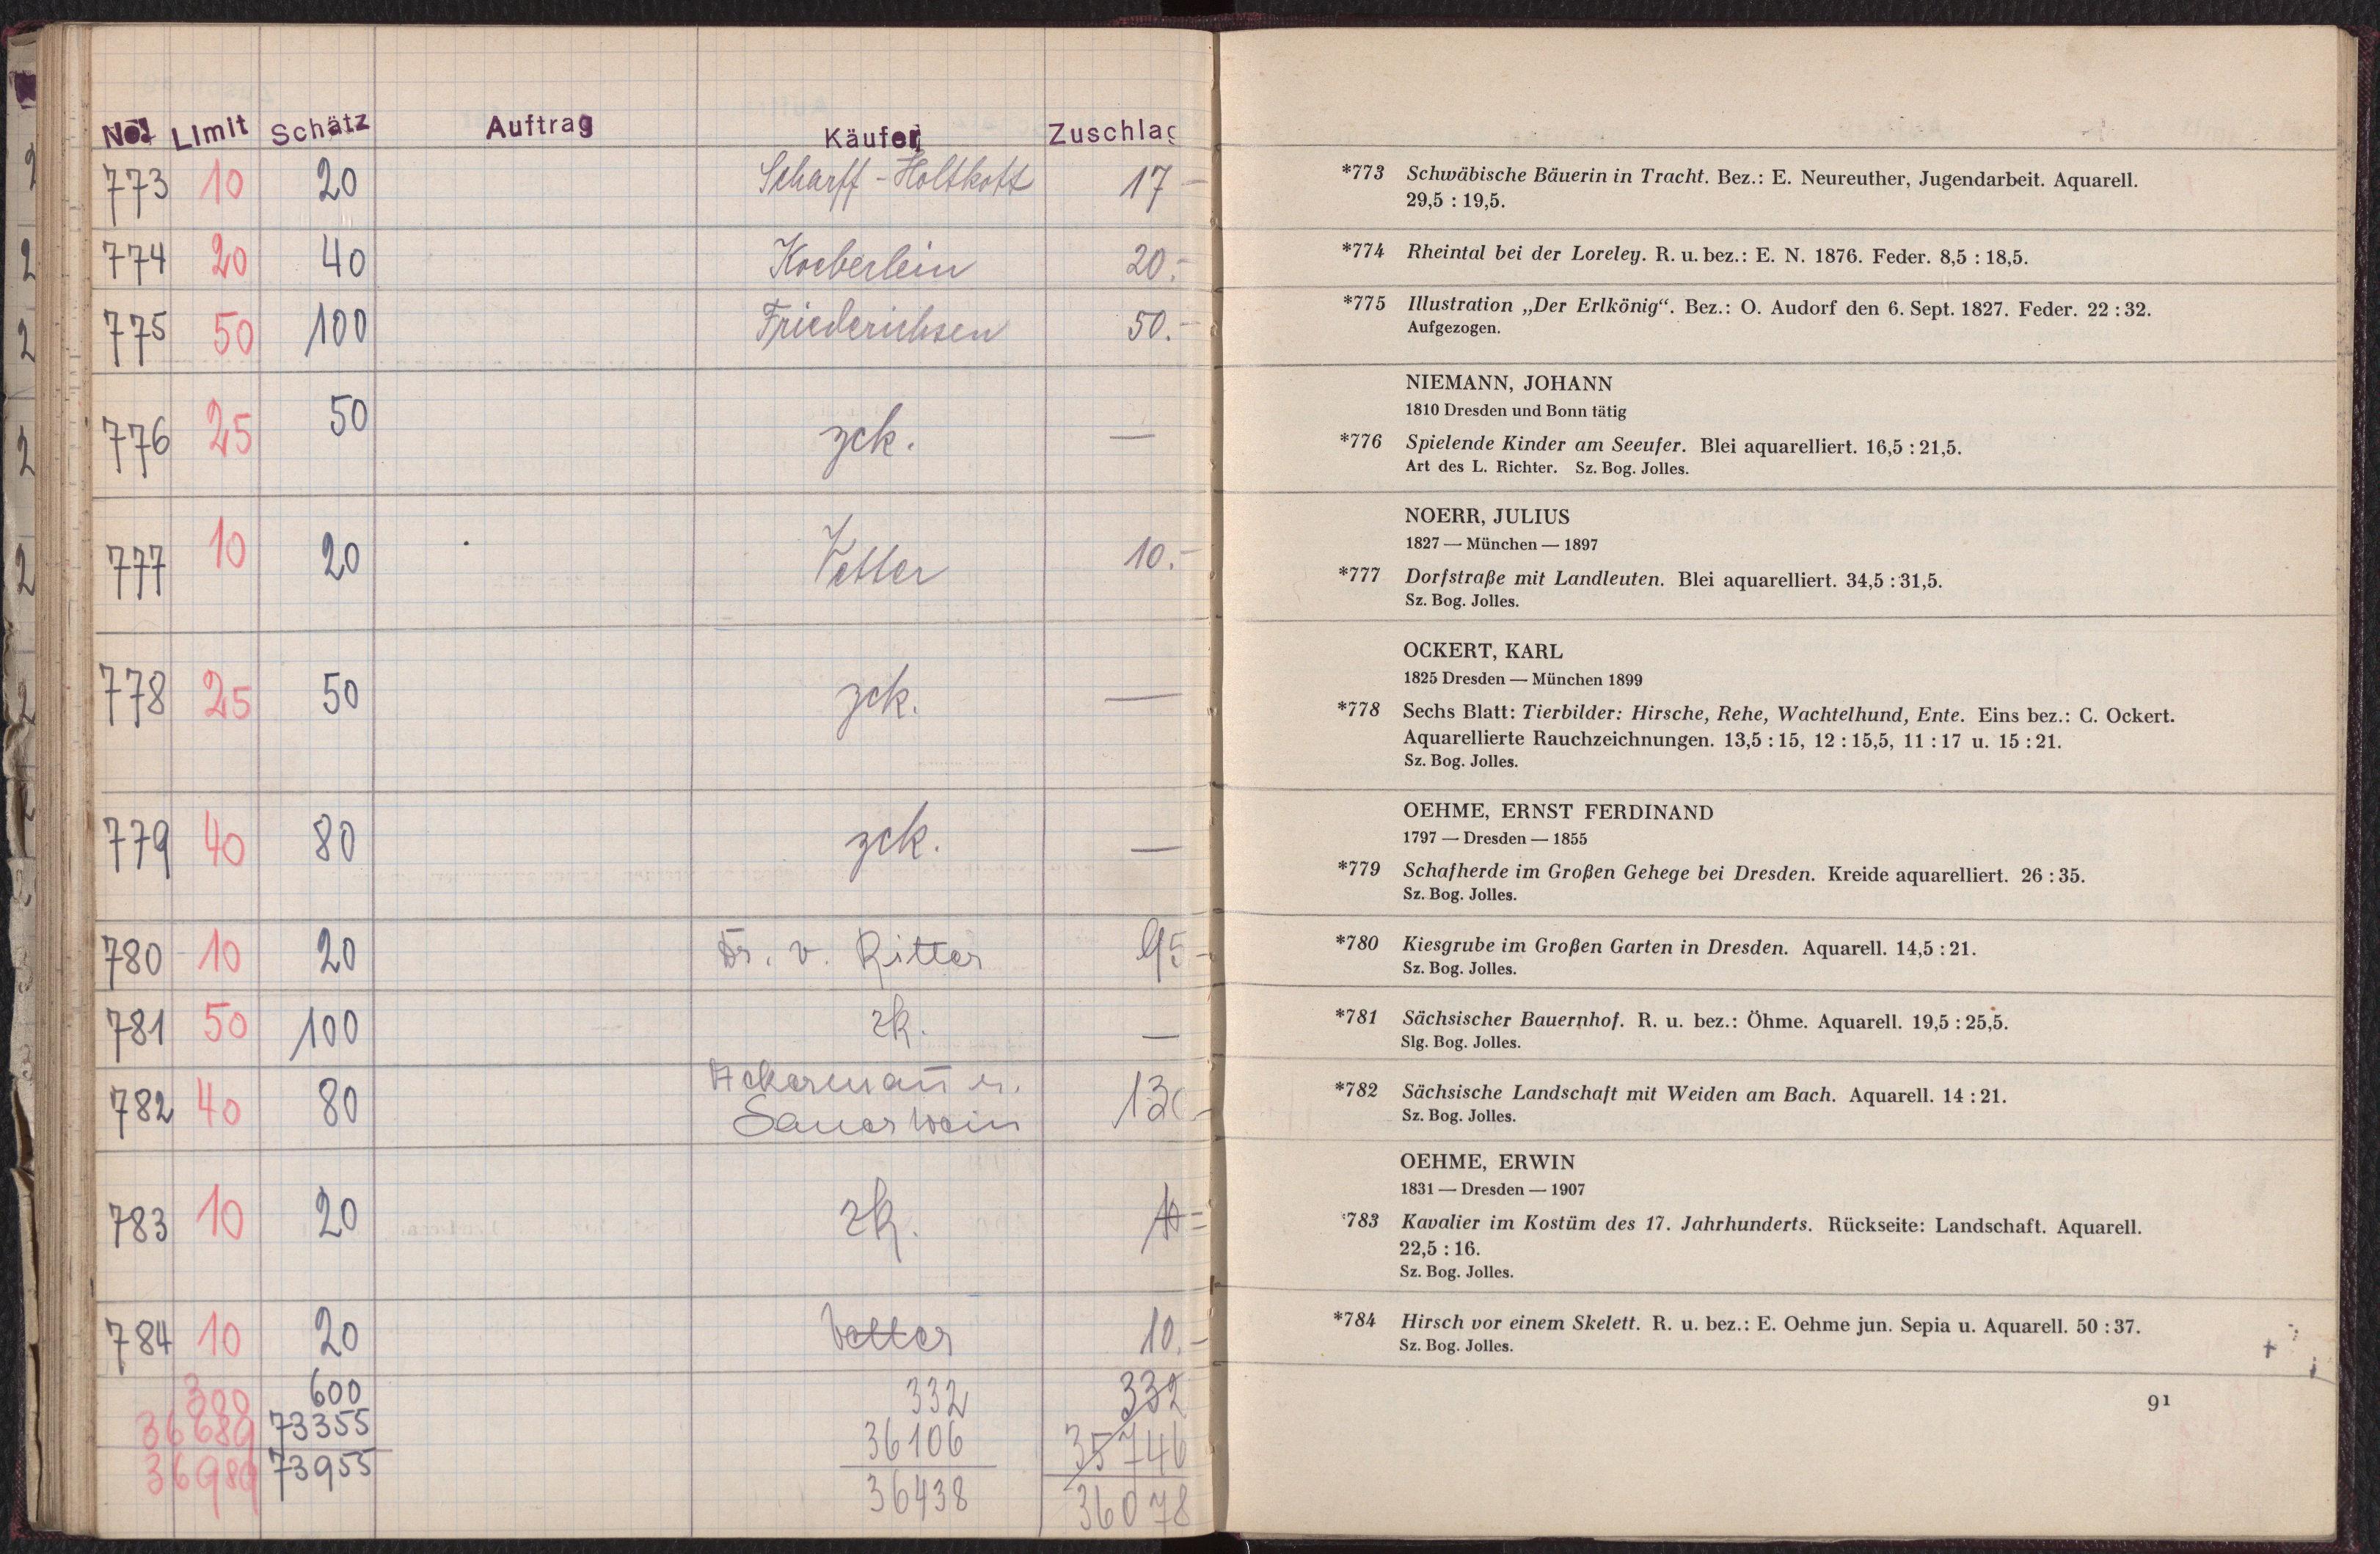 No. Limit Schätz Auftrag Käufer Zuschlag
773 10 20 Scharff-Holtkott 17 -
774 20 40 Koeberlein 20.-
775 50 100 Friederichsen 50.-
776 25 50 zck. —
777 10 20 Vetter 10.-
778 25 50 zck. —
779 40 80 zck. —
780 10 20 Dr. v. Ritter 95 -
781 50 100 zk. —
782 40 80 Ackermañ u.
Sauerwein 130 -
783 10 20 zk.
784 10 20 Vetter 10.-
300 600 332 332
36689 73355 36106 35746
36989 73955 36438 36078
*773 Schwäbische Bäuerin in Tracht. Bez.: E. Neureuther, Jugendarbeit. Aquarell.
29,5 : 19,5.
*774 Rheintal bei der Loreley. R. u. bez.: E. N. 1876. Feder. 8,5 : 18,5.
*775 Illustration „Der Erlkönig“. Bez.: O. Audorf den 6. Sept. 1827. Feder. 22 : 32.
Aufgezogen.
NIEMANN, JOHANN
1810 Dresden und Bonn tätig
*776 Spielende Kinder am Seeufer. Blei aquarelliert. 16,5 : 21,5.
Art des L. Richter. Sz. Bog. Jolles.
NOERR, JULIUS
1827 — München — 1897
*777 Dorfstraße mit Landleuten. Blei aquarelliert. 34,5 : 31,5.
Sz. Bog. Jolles.
OCKERT, KARL
1825 Dresden — München 1899
*778 Sechs Blatt: Tierbilder: Hirsche, Rehe, Wachtelhund, Ente. Eins bez.: C. Ockert.
Aquarellierte Rauchzeichnungen. 13,5 : 15, 12 : 15,5, 11 : 17 u. 15 : 21.
Sz. Bog. Jolles.
OEHME, ERNST FERDINAND
1797 — Dresden — 1855
*779 Schafherde im Großen Gehege bei Dresden. Kreide aquarelliert. 26 : 35.
Sz. Bog. Jolles.
*780 Kiesgrube im Großen Garten in Dresden. Aquarell. 14,5 : 21.
Sz. Bog. Jolles.
*781 Sächsischer Bauernhof. R. u. bez.: Öhme. Aquarell. 19,5 : 25,5.
Slg. Bog. Jolles.
*782 Sächsische Landschaft mit Weiden am Bach. Aquarell. 14 : 21.
Sz. Bog. Jolles.
OEHME, ERWIN
1831 — Dresden — 1907
*783 Kavalier im Kostüm des 17. Jahrhunderts. Rückseite: Landschaft. Aquarell.
22,5 : 16.
Sz. Bog. Jolles.
*784 Hirsch vor einem Skelett. R. u. bez.: E. Oehme jun. Sepia u. Aquarell. 50 : 37.
Sz. Bog. Jolles.
91